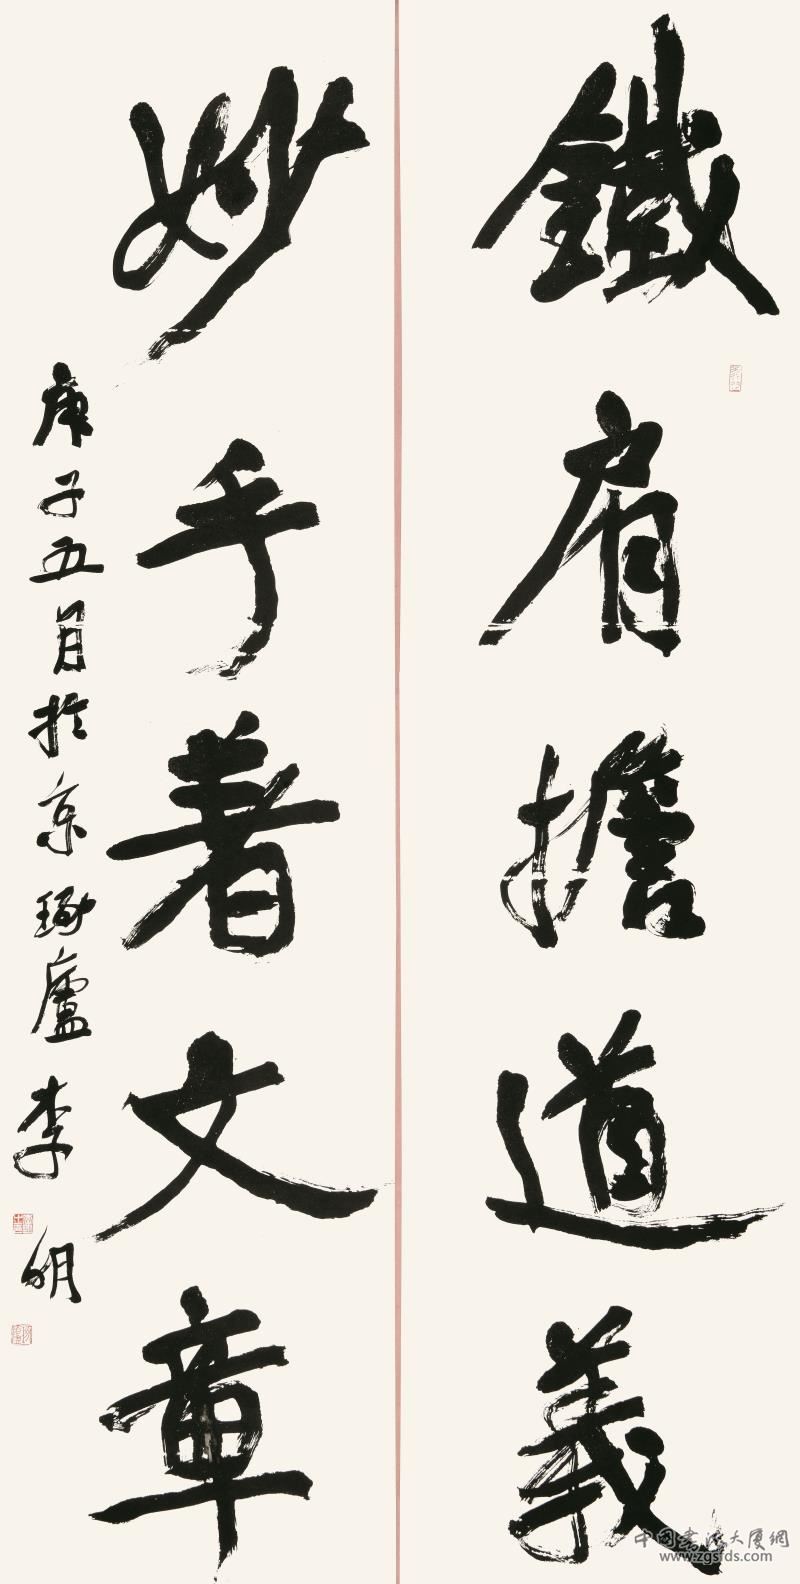 鐵肩擔道義
妙手著文章
庚子五月於京琢廬李明
中国书法大厦網
www.zgsfds.com